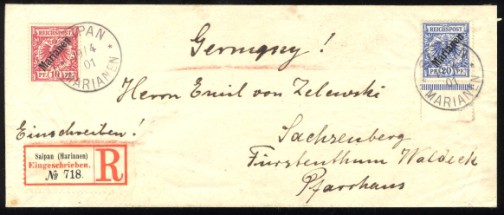 REICHSPOST
10 PF 10
Marianen
SAIPAN
19/4
01
MARIANEN
REICHSPOST
20 PF 20
Marianen
01
MARIANEN
Germany!
Herrn Emil von Zelewski
Einschreiben!
Sachsenberg
Fürstenthum Waldeck
Pfarrhaus
Saipan (Marianen)
Eingeschrieben.
№ 718.
R